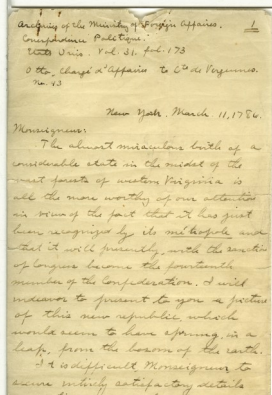 Archives of the Ministry of Foreign Affairs. 1
Correspondence Politique.
Etats Unis. Vol. 31. fol. 173
Otto, Chargé d'Affaires to Cte de Vergennes.
No. 43
New York. March. 11, 1786.
Monseigneur:
The almost miraculous birth of a
considerable state in the midst of the
vast forests of western Virginia is
all the more worthy of our attention
in view of the fact that it has just
been recognized by its métropole and
that it will presently, with the sanction
of Congress become the fourteenth
member of the Confederation. I will
endeavor to present to you a picture
of this new republic which
would seem to have sprung, in a
leap, from the bosom of the earth.
It is difficult Monseigneur to
secure entirely satisfactory details